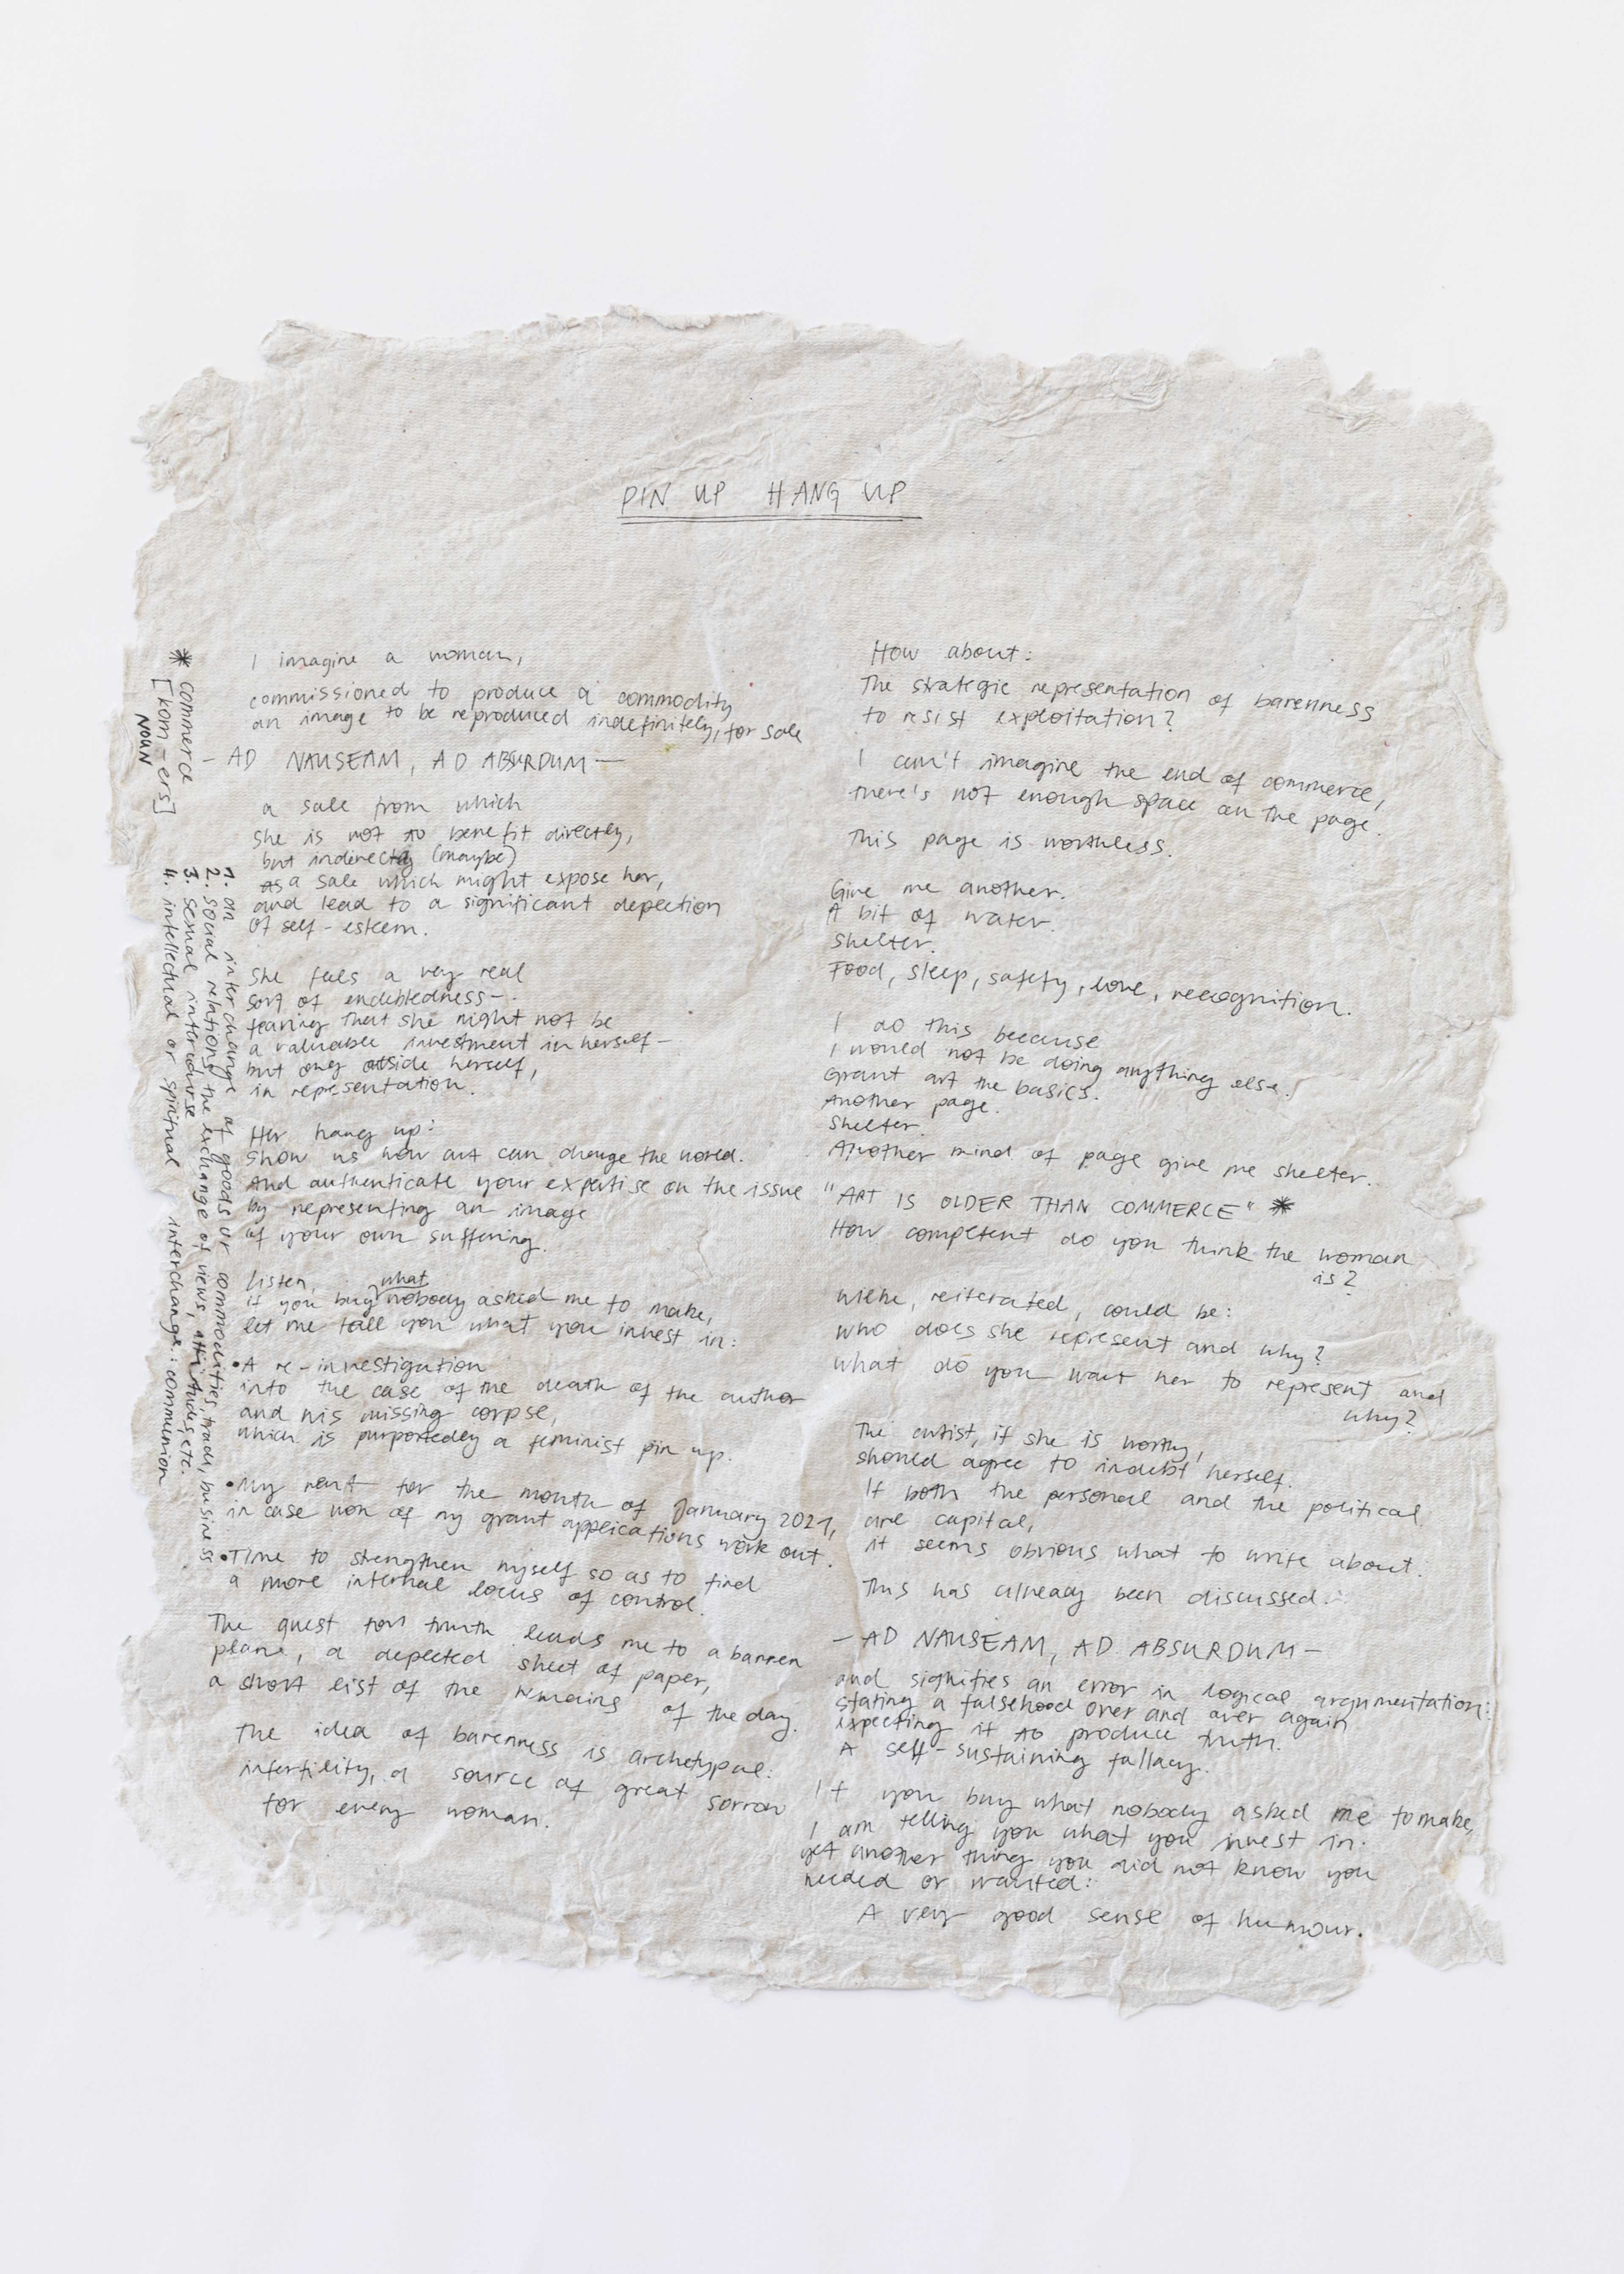 PIN UP HANG UP
I imagine a woman,
commissioned to produce a commodity
an image to be reproduced indefinitely, for sale
- AD NAUSEAM, AD ABSURDUM -
a sale from which
she is not to benefit directly,
but indirectly (maybe)
as a sale which might expose her,
and lead to a significant depection
of self-esteem.
She feels a very real
sort of endebtedness-
fearing that she might not be
a valuable investment in herself-
but only outside herself,
in representation.
Her hang up:
Show us how art can change the world.
And authenticate your expertise on the issue
by representing an image
of your own suffering.
Listen,
what
if you buy nobody asked me to make,
let me tell you what you invest in:
•A re-investigation
into the case of the death of the author
and his missing corpse,
which is purportedly a feminist pin up.
•My rent for the month of January 2021,
in case non of my grant applications work out.
•Time to strengthen myself so as to find
a more internal locus of control.
The quest for truth leads me to a barren
plane, a depected sheet of paper,
a short list of the remains of the day.
The idea of barenness is archetypal:
infertility, a source of great sorrow
for every woman.
How about:
The strategic representation of barenness
to resist exploitation?
I can't imagine the end of commerce,
there's not enough space on the page.
This page is worthless.
Give me another.
A bit of water.
Shelter.
Food, sleep, safety, love, recognition.
I do this because
I would not be doing anything else.
Grant art the basics.
Another page.
Shelter.
Another kind of page give me shelter.
"ART IS OLDER THAN COMMERCE" *
How competent do you think the woman
is?
Wiene, reiterated, could be:
Who does she represent and why?
What do you want her to represent and
why?
The artist, if she is worthy,
should agree to indebt herself.
If both the personal and the political
are capital,
it seems obvious what to write about.
This has already been discussed.
- AD NAUSEAM, AD ABSURDUM -
and signifies an error in logical argumentation:
stating a falsehood over and over again
expecting it to produce truth.
A self-sustaining fallacy.
If you buy what nobody asked me to make,
I am telling you what you invest in.
yet another thing you did not know you
needed or wanted:
A very good sense of humour.
* commerce
[kom-ers]
NOUN
1. an interchange of goods or commodities, trade, business
2. social relations, the exchange of views, attitudes, etc.
3. sexual intercourse
4. intellectual or spiritual interchange: communion